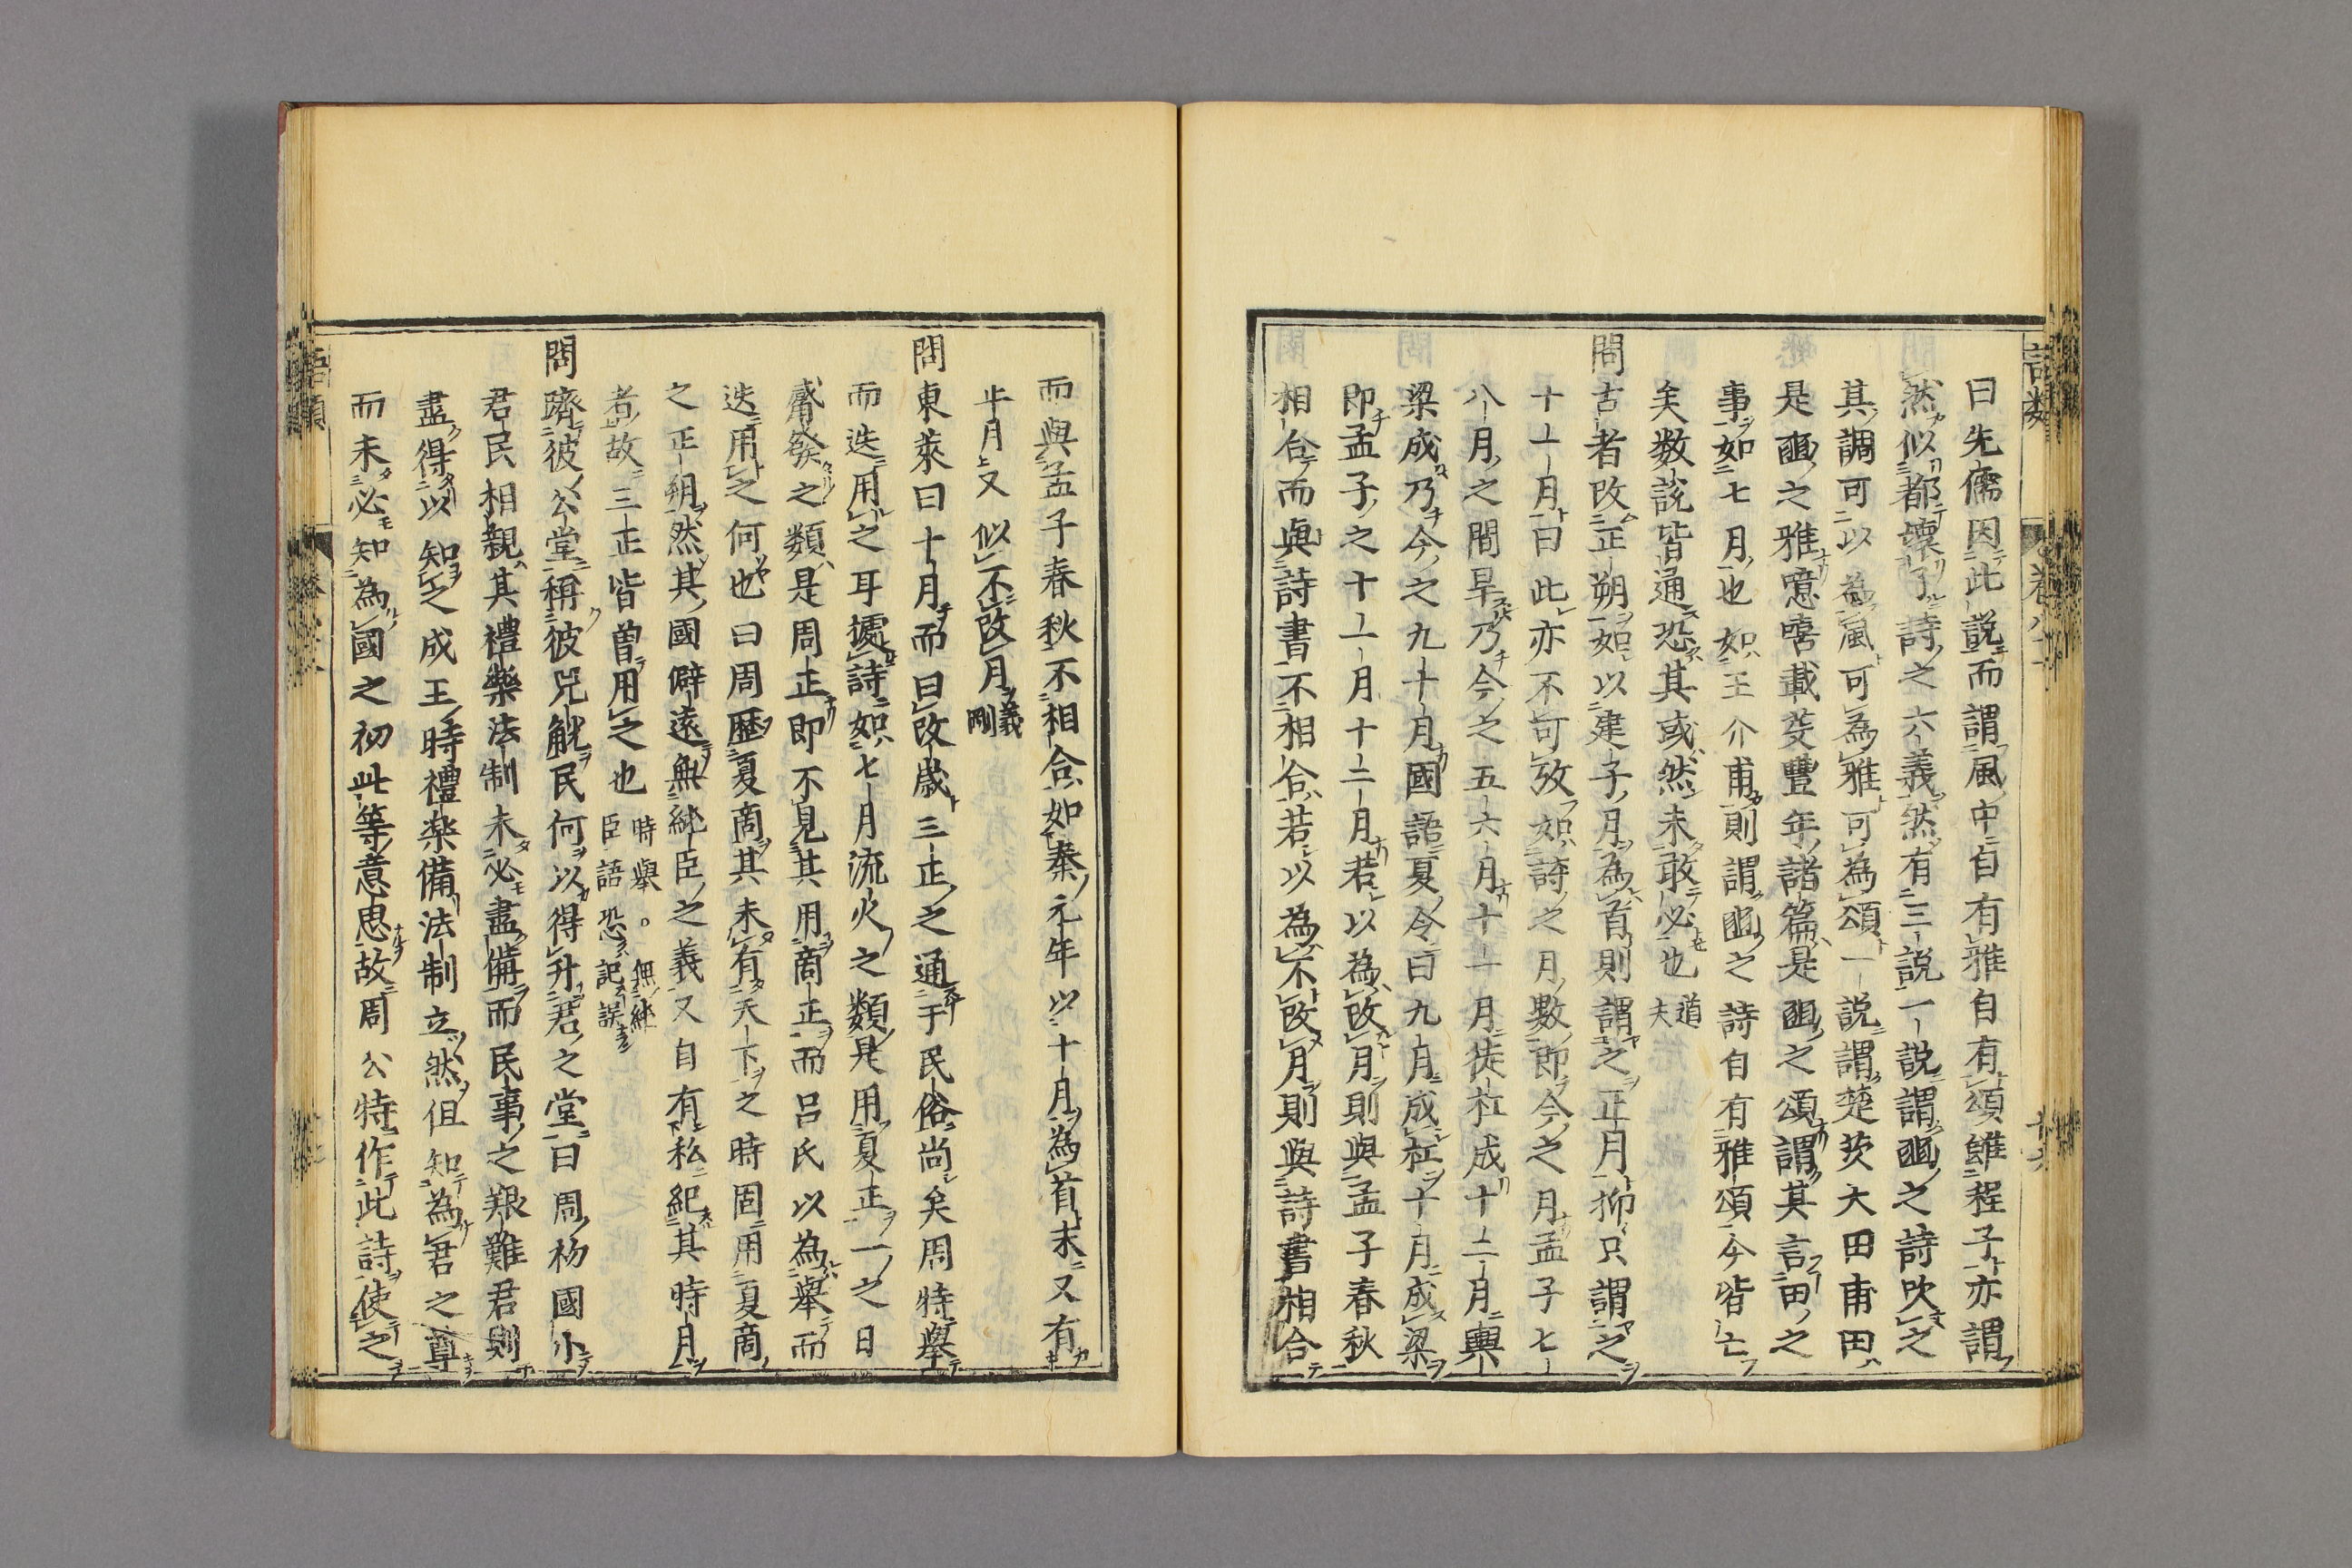 曰先儒因此說而謂風中自有雅自有頌雖程子亦謂
然似都壞了詩之六義然有三說一說謂豳之詩吹之
其調可以為風可為雅可為頌一說謂楚茨大田甫田
是豳之雅噫嘻載芟豐年諸篇是豳之頌謂其言田之
事如七月也如王介甫則謂豳之詩自有雅頌今皆亡
矣数說皆通恐其或然未敢必也 道夫
問古者改正朔如以建子月為首則謂之正月抑只謂之
十一月曰此亦不可攷如詩之月數即今之月孟子七
八月之間旱乃今之五六月十一月徒杠成十二月輿
梁成乃今之九十月國語夏令曰九月成杠十月成梁
即孟子之十一月十二月若以為改月則與孟子春秋
相合而與詩書不相合若以為不改月則與詩書相合
而與孟子春秋不相合如秦元年以十月為首末又有
正月又似不改月 義剛
問東萊曰十月而曰改歲三正之通于民俗尚矣周特舉
而迭用之耳據詩如七月流火之類是用夏正一之日
觱發之類是周正即不見其用商正而呂氏以為舉而
迭用之何也曰周歷夏商其未有天下之時固用夏商
之正朔然其國僻遠無純臣之義又自有私紀其時月
者故三正皆曾用之也 時舉。無純臣語恐記誤
問躋彼公堂稱彼兕觥民何以得升君之堂曰周初國小
君民相親其禮樂法制未必盡備而民事之艱難君則
盡得以知之成王時禮樂備法制立然但知為君之尊
而未必知為國之初此等意思故周公特作此詩使之